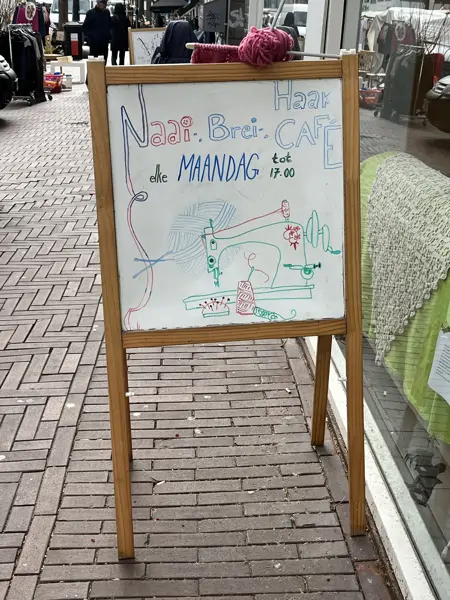 Haak
Naai-, Brei-, CAFÉ
elke MAANDAG tot
17.00